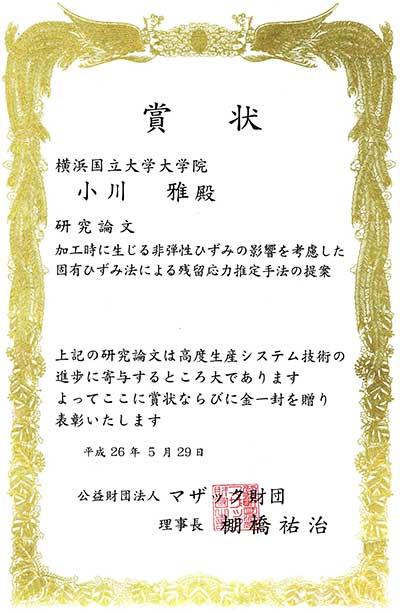 賞状
横浜国立大学大学院
小川 雅殿
研究論文
加工時に生じる非弾性ひずみの影響を考慮した
固有ひずみ法による残留応力推定手法の提案
上記の研究論文は高度生産システム技術の
進歩に寄与するところ大であります
よってここに賞状ならびに金一封を贈り
表彰いたします
平成26年5月29日
公益財団法人 マザック財団
理事長 棚橋祐治